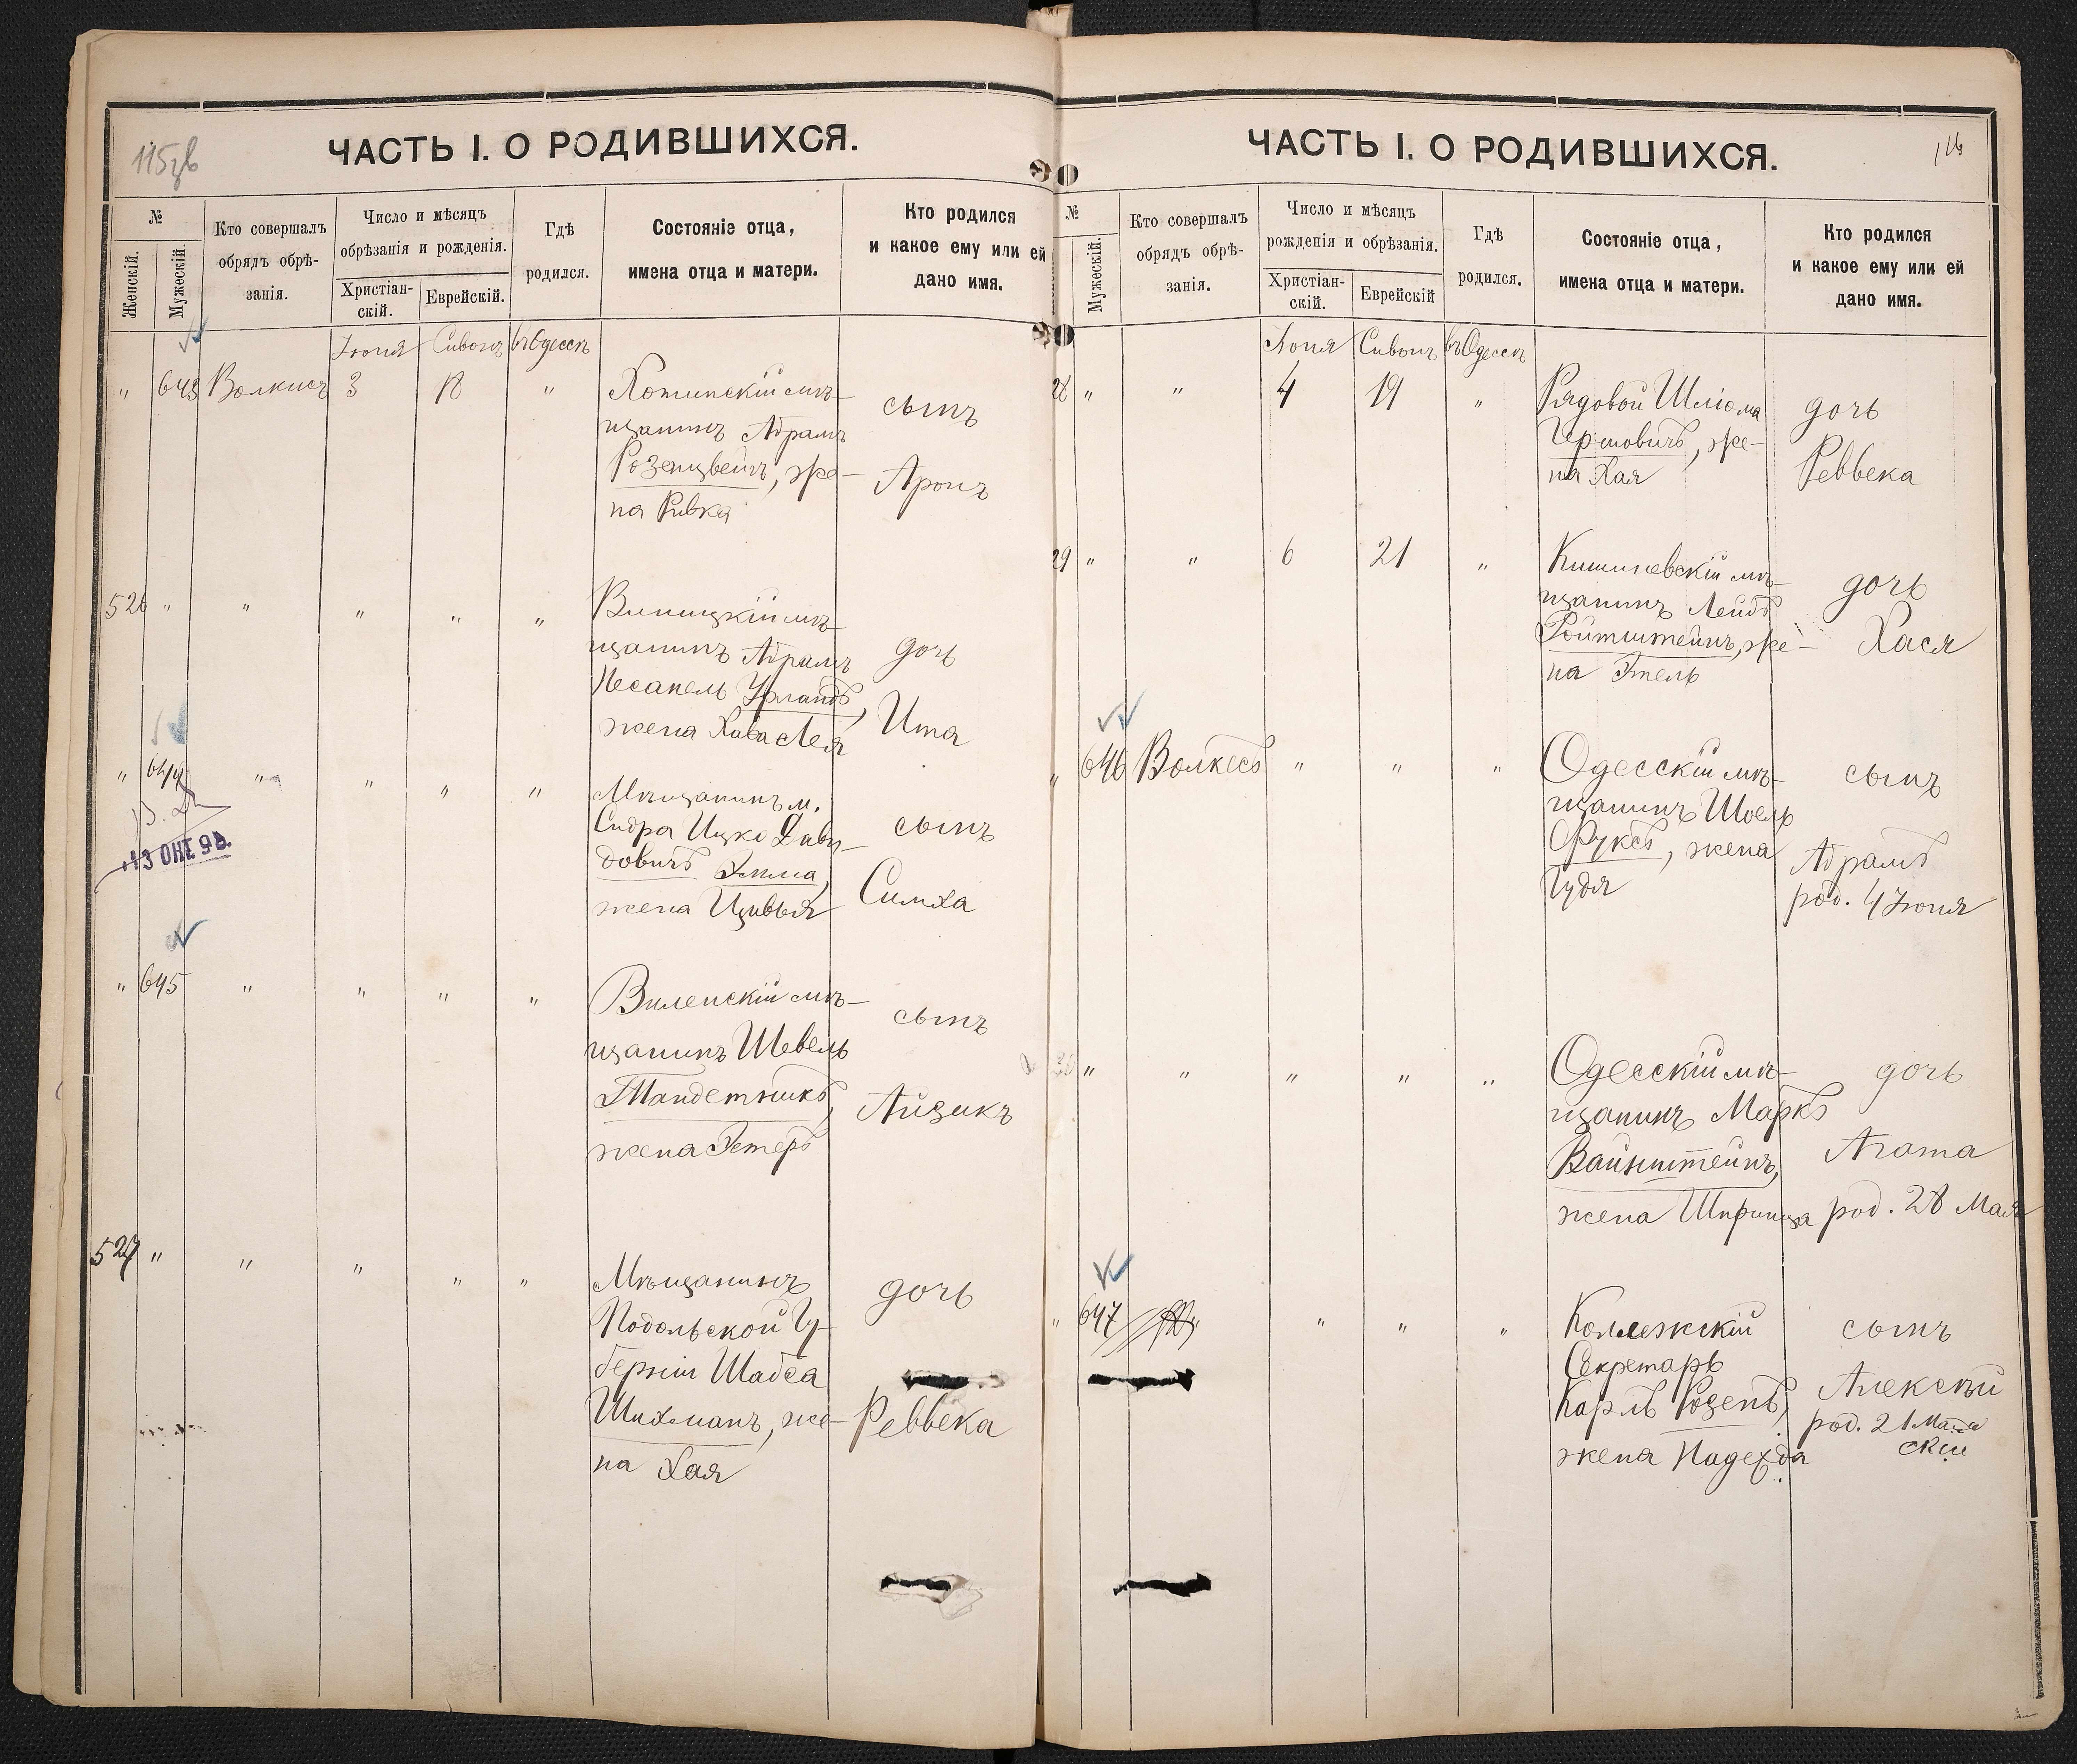 ЧАСТЬ I. О РОДИВШИХСЯ.
№
Женскій.
Мужескій.
Кто совершалъ
обрядъ обрѣ-
занія.
Число и мѣсяцъ
обрѣзанія и рожденія.
Христіан-
скій.
Еврейскій.
Гдѣ
родился.
Состояніе отца,
имена отца и матери.
Кто родился
и какое ему или ей
дано имя.
Іюня Сивонъ въ Одессѣ
" 643 Волкисъ 3 18 " Хотинскій мѣ-
щанинъ Абрамъ
Розенцвейгъ, же-
на Ривка
сынъ
Аронъ
526 " " " " " Виницкій мѣ-
щанинъ Абрамъ
Песапель Урландъ,
жена Хава Лея
дочь
Ита
" 644 " " " " Мѣщанинъ м.
Сидра Ицко Дави-
довичъ
жена Цивья
сынъ
Симха
13 ОКТ 98.
" 645 " " " " Виленскій мѣ-
щанинъ Шевель
Тандетникъ,
жена Эстеръ
сынъ
Айзикъ
527 " " " " " Мѣщанинъ
Подольской Гу-
берніи Шабса
Шихманъ, же-
на Хая
дочь
Реввека
ЧАСТЬ I. О РОДИВШИХСЯ.
№
Мужескій.
Кто совершалъ
обрядъ обрѣ-
занія.
Число и мѣсяцъ
рожденія и обрѣзанія.
Христіан-
скій.
Еврейскій
Гдѣ
родился.
Состояніе отца,
имена отца и матери.
Кто родился
и какое ему или ей
дано имя.
Іюня Сивонъ въ Одессѣ
28 " " 4 19 " Рядовой Шліома
Гершовичъ, же-
на Хая
дочь
Реввека
29 " " 6 21 " Кишиневскій мѣ-
щанинъ Лейбъ
Ройтштейнъ, же-
на Этель
дочь
Хася
" 646 Волкесъ " " " Одесскій мѣ-
щанинъ Шоель
Фуксъ, жена
Гудя
сынъ
Абрамъ
род. 4 Іюня
30 " " " " " Одесскій мѣ-
щанинъ Маркъ
Вайнштейнъ,
жена Шифинца
дочь
Агата
род. 28 Мая
" 647 " " " Коллежскій
Секретарь
Карлъ Розенъ,
жена Надежда
сынъ
Алексѣй
род. 21 Мая